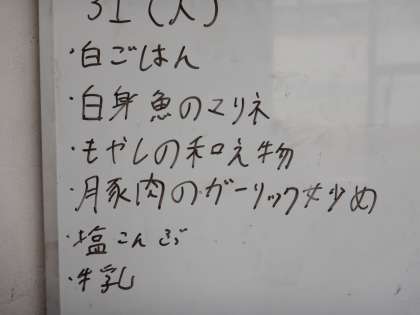 31(火)
・白ごはん
・白身魚のマリネ
・もやしの和え物
・豚肉のガーリック炒め
・塩こんぶ
・牛乳